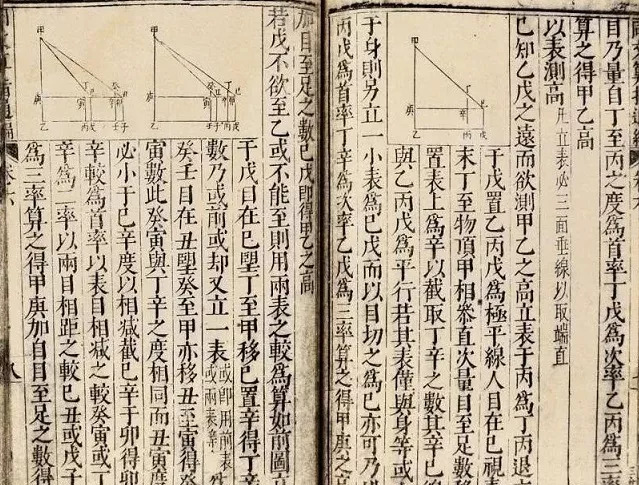 目乃量自丁至丙之度爲首率丁戊爲次率乙丙爲三
算之得甲乙高
以表測高凡立表必三面垂線以取端直
已知乙戊之遠而欲測甲乙之高立表于丙爲丁丙退
于戊置乙丙戊爲極平線人目在已視表
末丁至物頂甲相叅直次量目至足數移
置表上爲辛以截取丁辛之數其辛已
與乙丙戊爲平行若其表僅與身等或
于身則另立一小表爲已戊而以目切之爲已亦可乃
丙戊爲首率丁辛爲次率乙戊爲三率算之得甲庚之高
加目至足之數已戊卽得甲乙之高
若戊不欲至乙或不能至則用兩表之較爲算如前圖立
于戊目在已望丁至甲移已置辛得丁辛
數乃或前或却又立一表或卽用前表或兩表等
癸壬目在丑望癸至甲亦移丑至寅得癸
寅數此癸寅與丁辛之度相同而丑寅度
必小于已辛度以相減截已辛于卯得卯
辛較爲首率以表目相減之較癸寅或丁
辛爲二率以兩目相距之較已丑或戊子
爲三率算之得甲庚加自目至足之數得
甲
丁
已
辛
庚
乙
丙
戊
甲
丁
庚
乙
丙
戊
甲
丁
癸
庚
乙
丙
壬
子